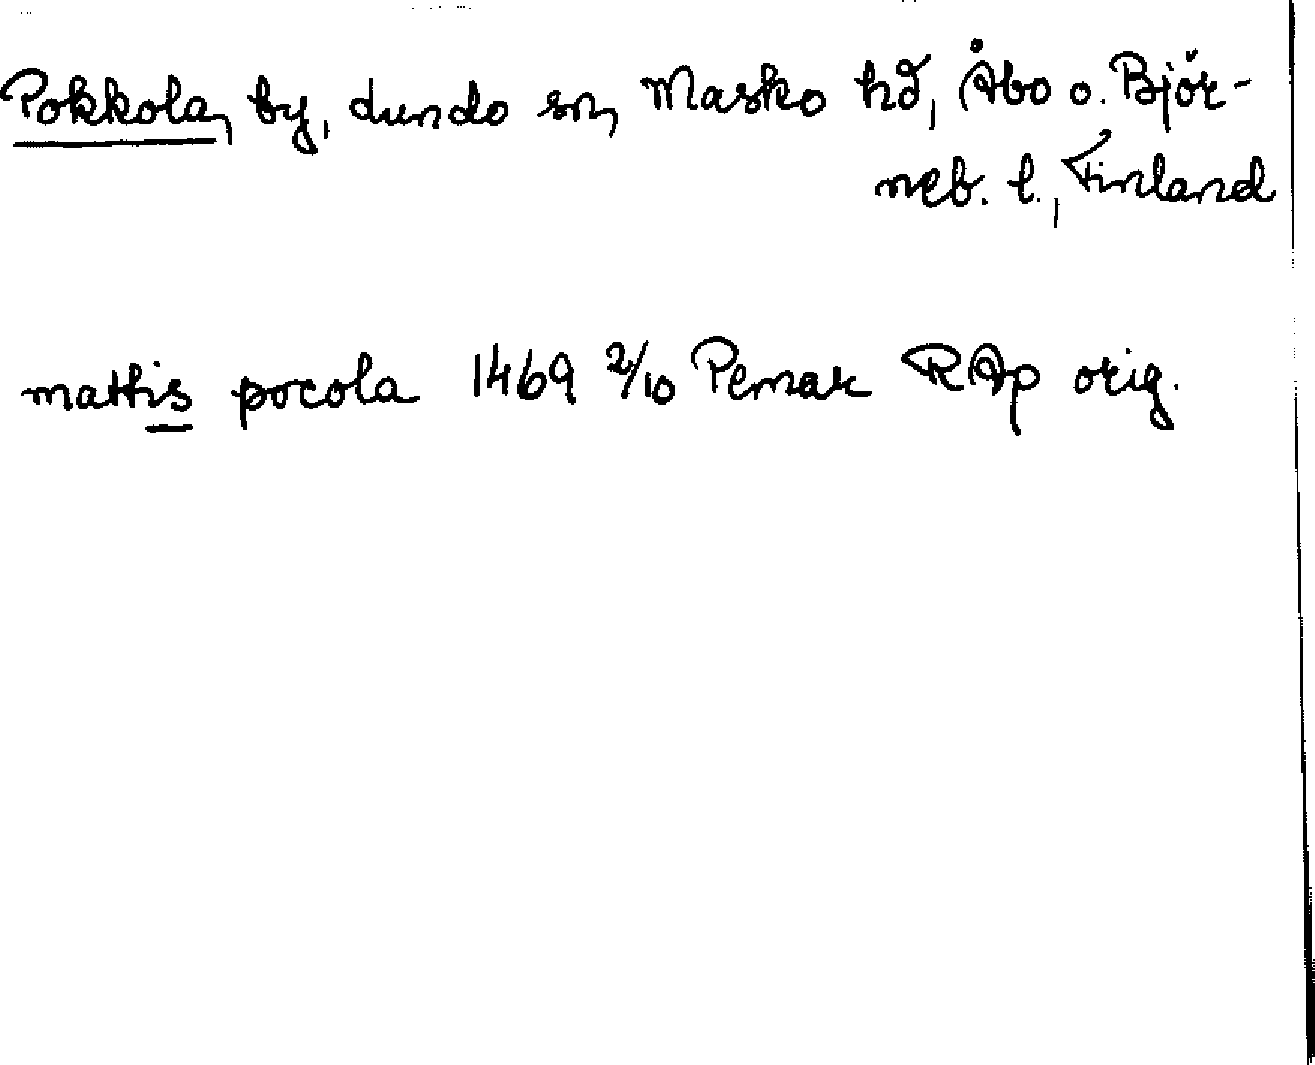 Pokkola, by, Lundo sn, Masko hd, Åbo o. Björ-
neb. l., Finland
matthis pocola 1469 2/10 Pemar RAp orig.